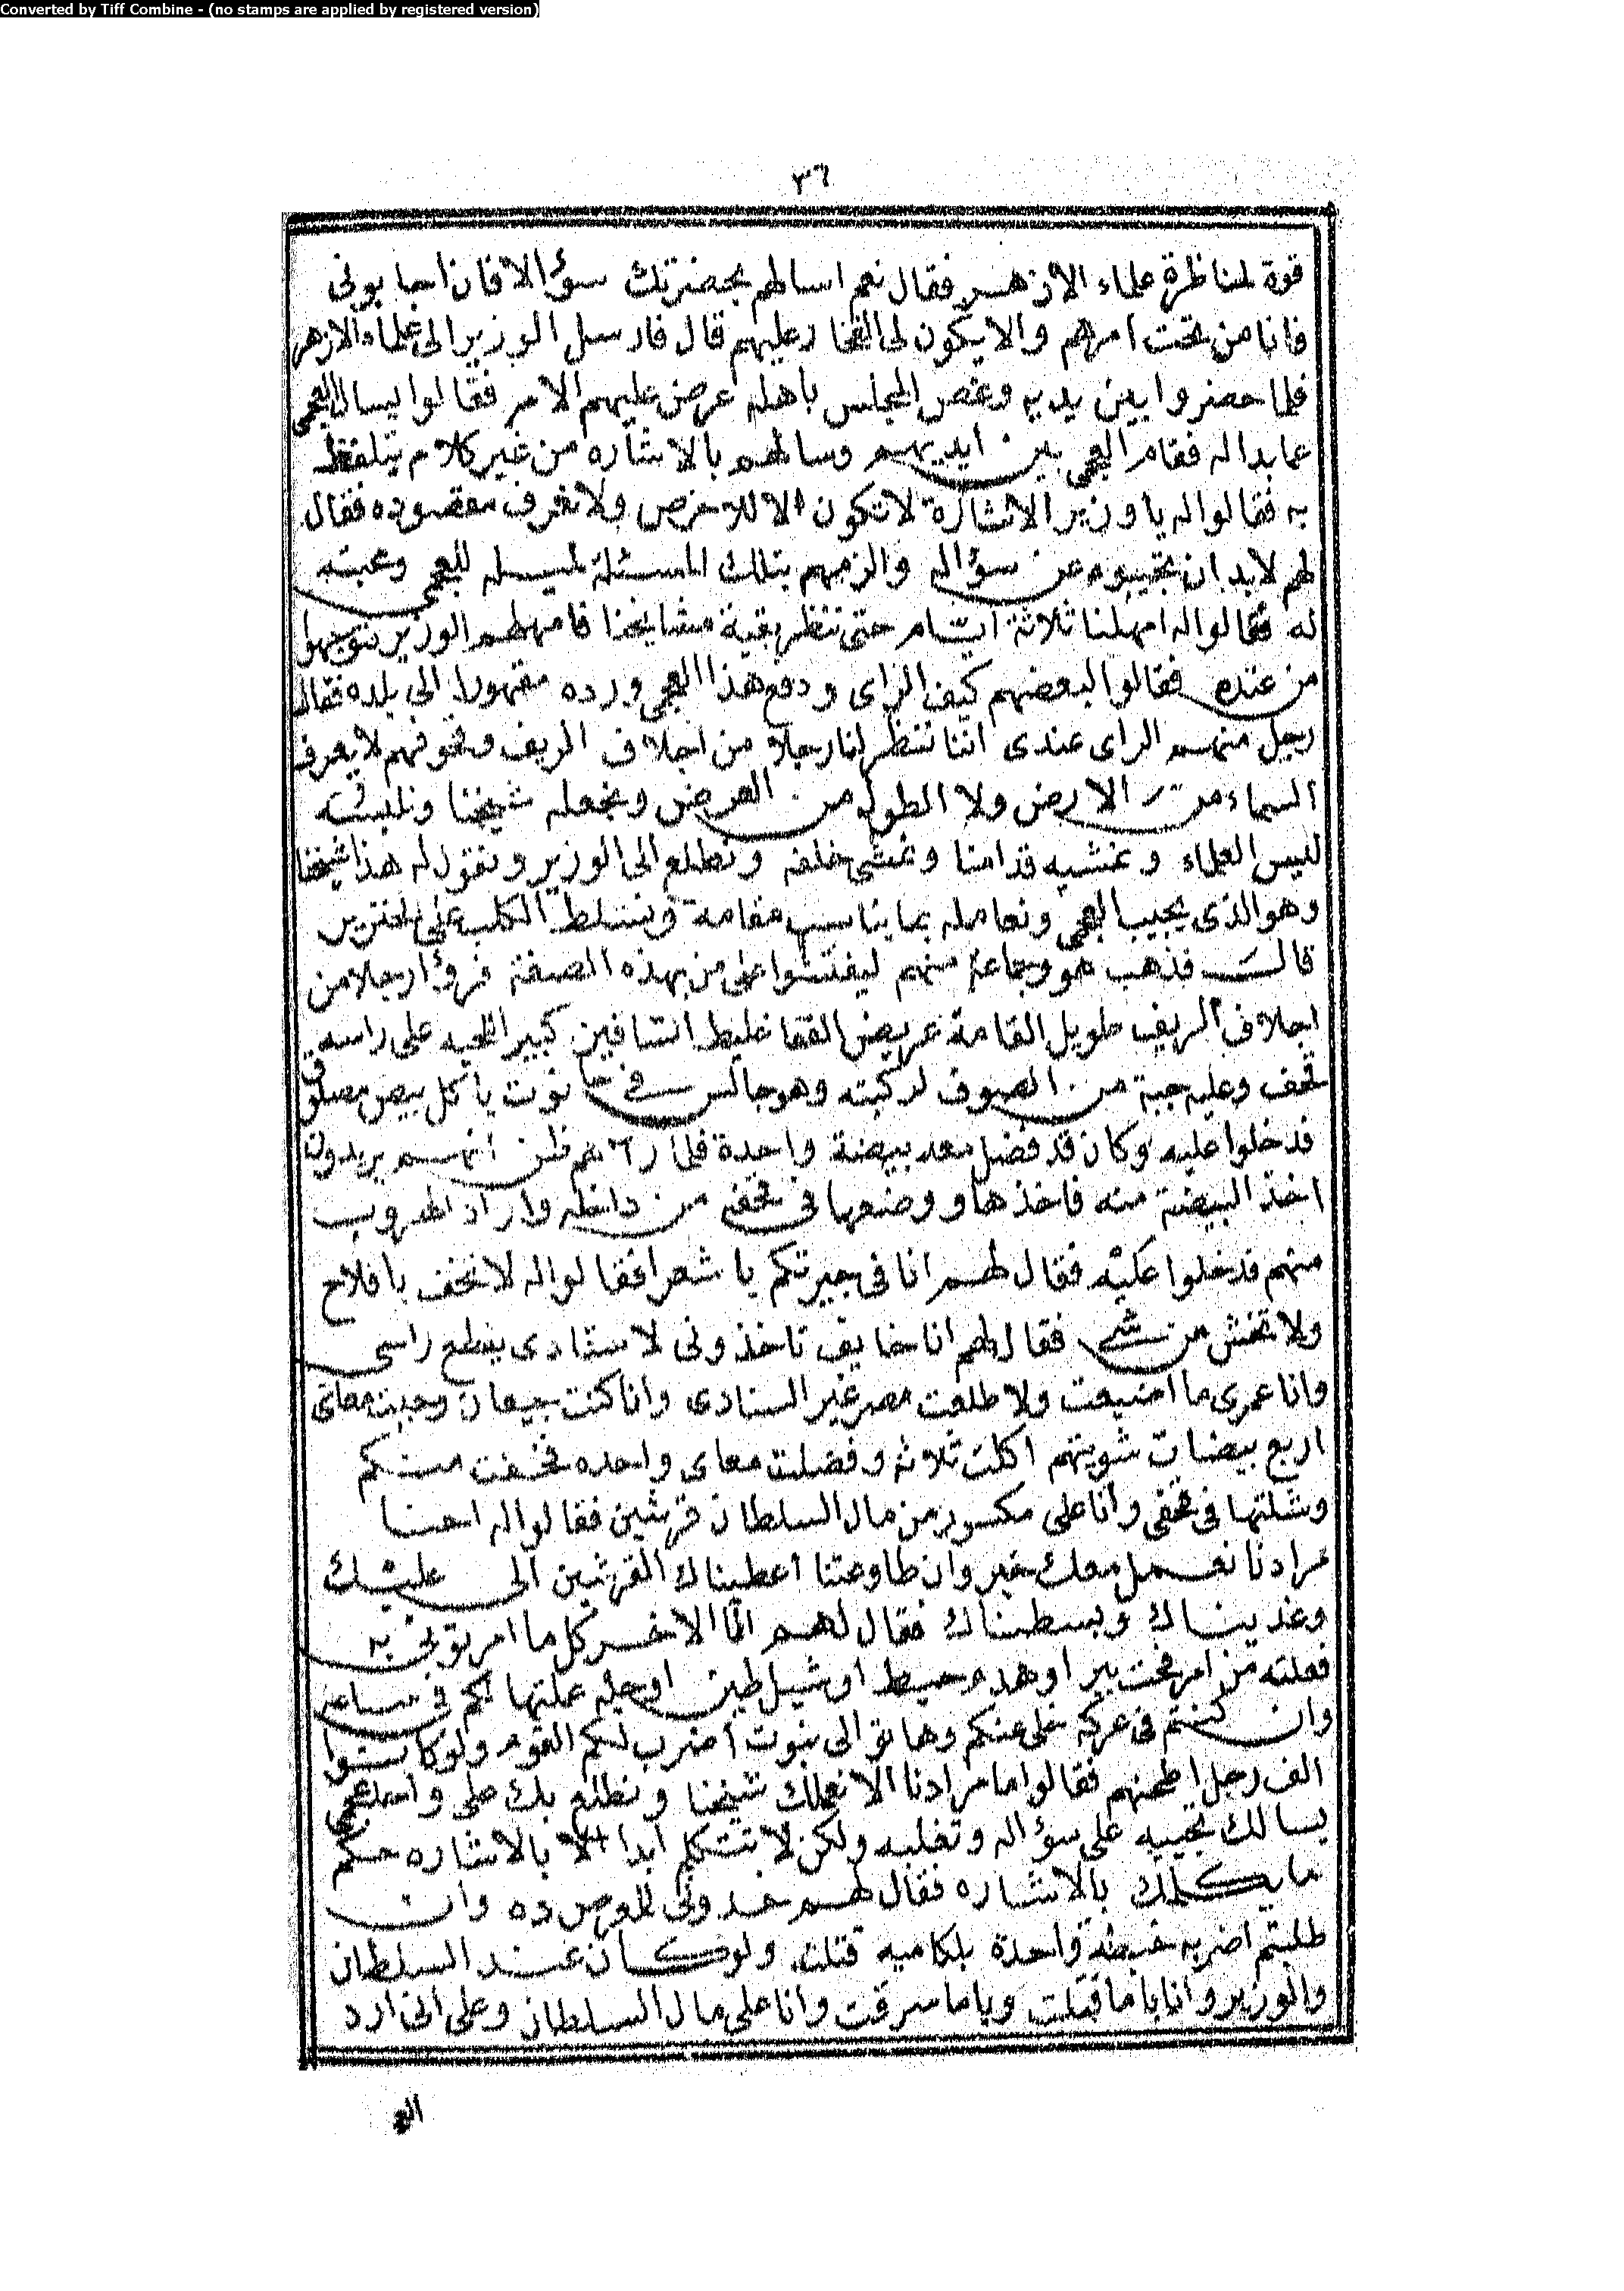 Converted by Tiff Combine - (no stamps are applied by registered version)
٣٦
قوة لمناظرة علماء الازهر فقال نعم اسالهم بحضرتك سؤالا فان اجابونى
فانا من تحت امرهم والا يكون لى الفخار عليهم قال فارسل الوزير الى علماء الازهر
فلما حضروا بين يديه وغص المجلس باهله عرض عليهم الامر فقالوا يسال العجمى
عما بداله فقام العجمى بين ايديهم وسالهم بالاشاره من غير كلام يتلفظ
به فقالوا له يا وزير الاشارة لا تكون الا للاخرص ولا نعرف مقصوده فقال
لهم لا بد ان تجيبوه عن سؤاله والزمهم بتلك المسئلة لميله للعجمى ومحبته
له فقالوا له امهلنا ثلاثة ايام حتى ننظر بقية مشايخنا فامهلهم الوزير فتوجهوا
من عنده فقالوا لبعضهم كيف الراى ودفع هذا العجمى ورده مقهورا الى بلده فقال
رجل منهم الراى عندى اننا ننظر لنا رجلا من اجلاف الريف وقحوفهم لا يعرف
السماء من الارض ولا الطول من العرض ونجعله شيخنا ونلبسه
لبس العلماء ونمشيه قدامنا ونمشى خلفه ونطلع الى الوزير ونقول له هذا شيخنا
وهو الذى يجيب العجمى ونعامله بما يناسب مقامه ونسلط الكلب على الخنزير
قال فذهب هو وجماعة منهم ليفتشوا على من بهذه الصفة فرؤا رجلا من
اجلاف الريف طويل القامة عريض القفا غليظ الساقين كبير اللحيه على راسه
قحف وعليه جبة من الصوف لركبته وهو جالس فى حانوت ياكل بيض مصلوق
فدخلوا عليه وكان قد فضل معه بيضة واحدة فلما رآهم ظن انهم يريدون
اخذ البيضة منه فاخذها ووضعها فى قحفه من داخله واراد الهروب
منهم فدخلوا عليه فقال لهم انا فى جيرتكم يا شعرا فقالوا له لا تخف يا فلاح
ولا تخش من شى فقال لهم انا خايف تاخذونى لاستادى يقطع راسى
وانا عمرى ما اضيعت ولا طلعت مصر غير السنادى وانا كنت جيعان وجبت معاى
اربع بيضات شويتهم اكلت ثلاثه وفضلت معاى واحده فخفت منكم
وشلتها فى قحفى وانا على مكسور من مال السلطان قرشين فقالوا له احنا
مرادنا نعمل معك خير وان طاوعتنا اعطيناك القرشين الى عليك
وغديناك وبسطناك فقال لهم انا الاخر كل ما امرتونى به
فعلته من امر فحت بير او هده حيط او شيل طين او جله عملتها لكم فى ساعه
وان كنتم فى عركه على عنكم وهاتوا لى نبوت اضرب لكم القوم ولو كانوا
الف رجل اطحنهم فقالوا ما مرادنا الا نعملك شيخنا ونطلع بك على واحد عجمى
يسالك تجيبه على سؤاله وتغلبه ولكن لا تتكلم ابدا الا بالاشاره حكم
ما يكلمك بالاشاره فقال لهم خدونى للوص ده وان
طلبتم اضربه خبطه واحدة بلكاميه قتلته ولو كان عند السلطان
والوزير وانا ياما قتلت وياما سرقت وانا على مال السلطان وعلى انى ارد